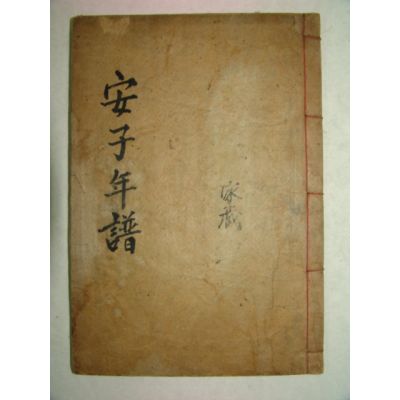 安子年譜
家藏